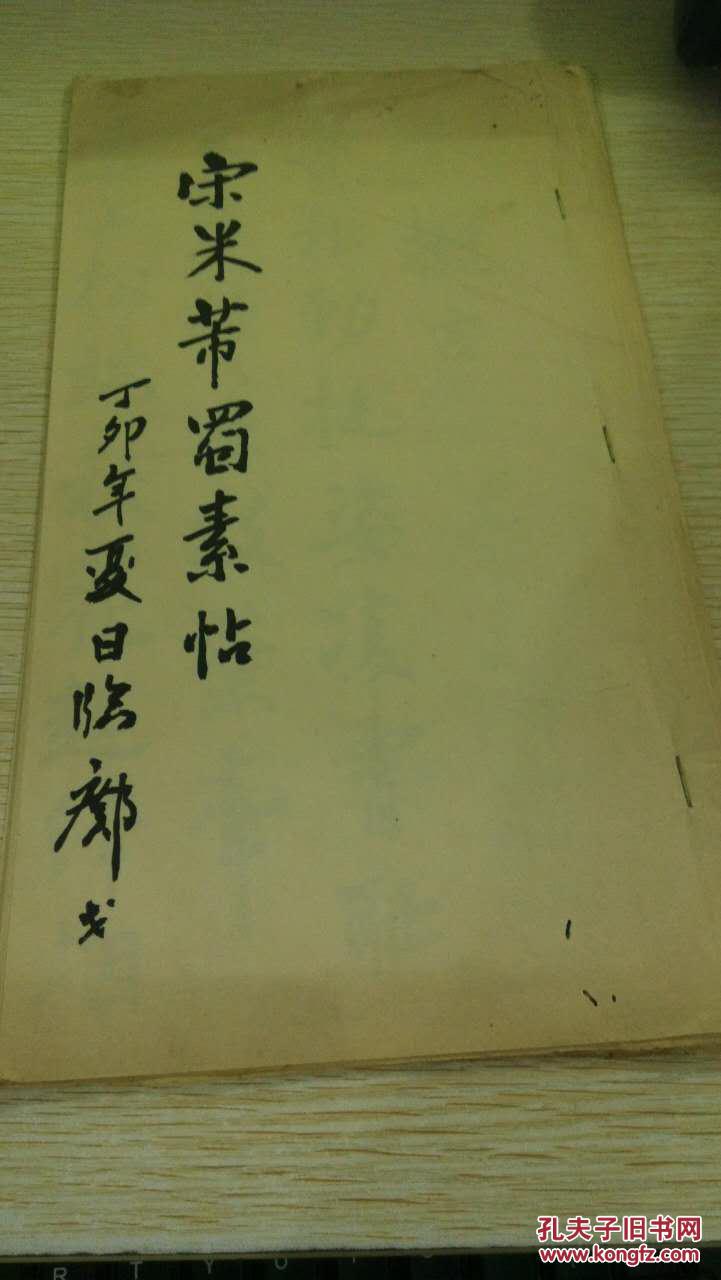 宋米芾蜀素帖
丁卯年夏日临
孔夫子旧书网
www.kongfz.com
R T Y U I O